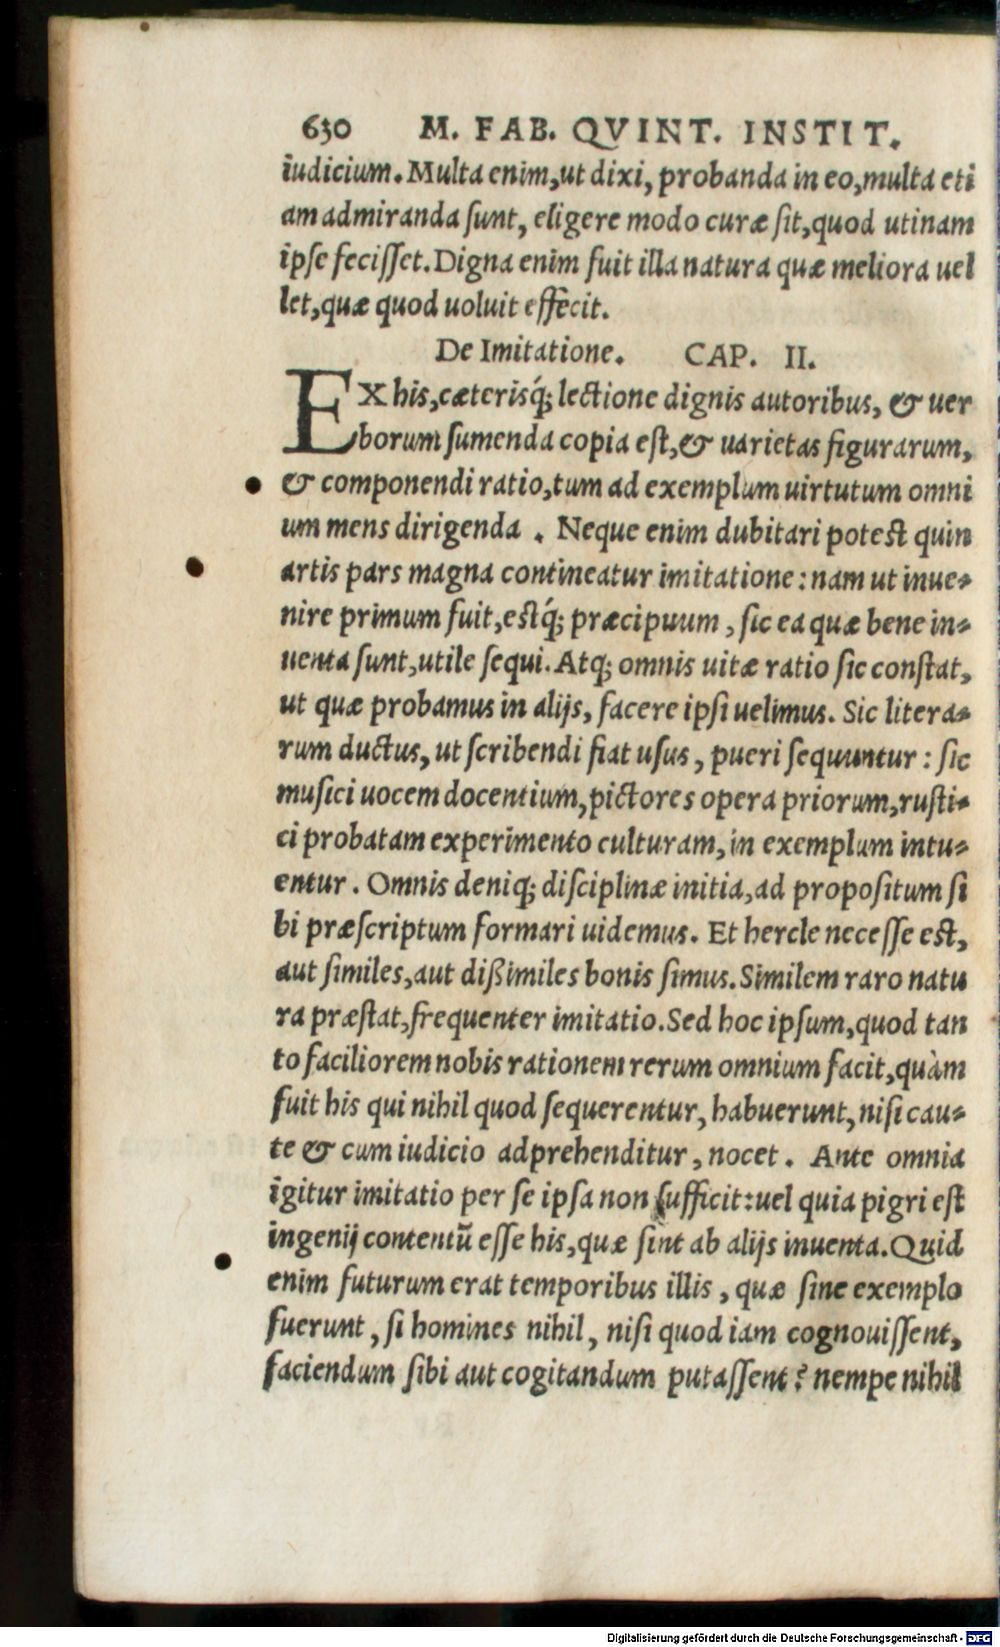 630 M. FAB. QVINT. INSTIT.
iudicium. Multa enim, ut dixi, probanda in eo, multa eti
am admiranda ſunt, eligere modo curæ ſit, quod utinam
ipſe feciſſet. Digna enim fuit illa natura quæ meliora uel
let, quæ quod uoluit effecit.
De Imitatione. CAP. II.
EX his, cæterisq́; lectione dignis autoribus, & uer
borum ſumenda copia eſt, & uarietas figurarum,
& componendi ratio, tum ad exemplum uirtutum omni
um mens dirigenda . Neque enim dubitari poteſt quin
artis pars magna contineatur imitatione: nam ut inue-
nire primum fuit, eſtq́; præcipuum, ſic ea quæ bene in-
uenta ſunt, utile ſequi. Atq; omnis uitæ ratio ſic conſtat,
ut quæ probamus in alijs, facere ipſi uelimus. Sic litera-
rum ductus, ut ſcribendi fiat uſus, pueri ſequuntur: ſic
muſici uocem docentium, pictores opera priorum, ruſti-
ci probatam experimento culturam, in exemplum intu-
entur. Omnis deniq; diſciplinæ initia, ad propoſitum ſi
bi præſcriptum formari uidemus. Et hercle neceſſe eſt,
aut ſimiles, aut dißimiles bonis ſimus. Similem raro natu
ra præſtat, frequenter imitatio. Sed hoc ipſum, quod tan
to faciliorem nobis rationem rerum omnium facit, quàm
fuit his qui nihil quod ſequerentur, habuerunt, niſi cau-
te & cum iudicio adprehenditur, nocet. Ante omnia
igitur imitatio per ſe ipſa non ſufficit: uel quia pigri eſt
ingenij contentū eſſe his, quæ ſint ab alijs inuenta. Quid
enim futurum erat temporibus illis, quæ ſine exemplo
fuerunt, ſi homines nihil, niſi quod iam cognouiſſent,
faciendum ſibi aut cogitandum putaſſent? nempe nihil
Digitalisierung gefördert durch die Deutsche Forschungsgemeinschaft - DFG